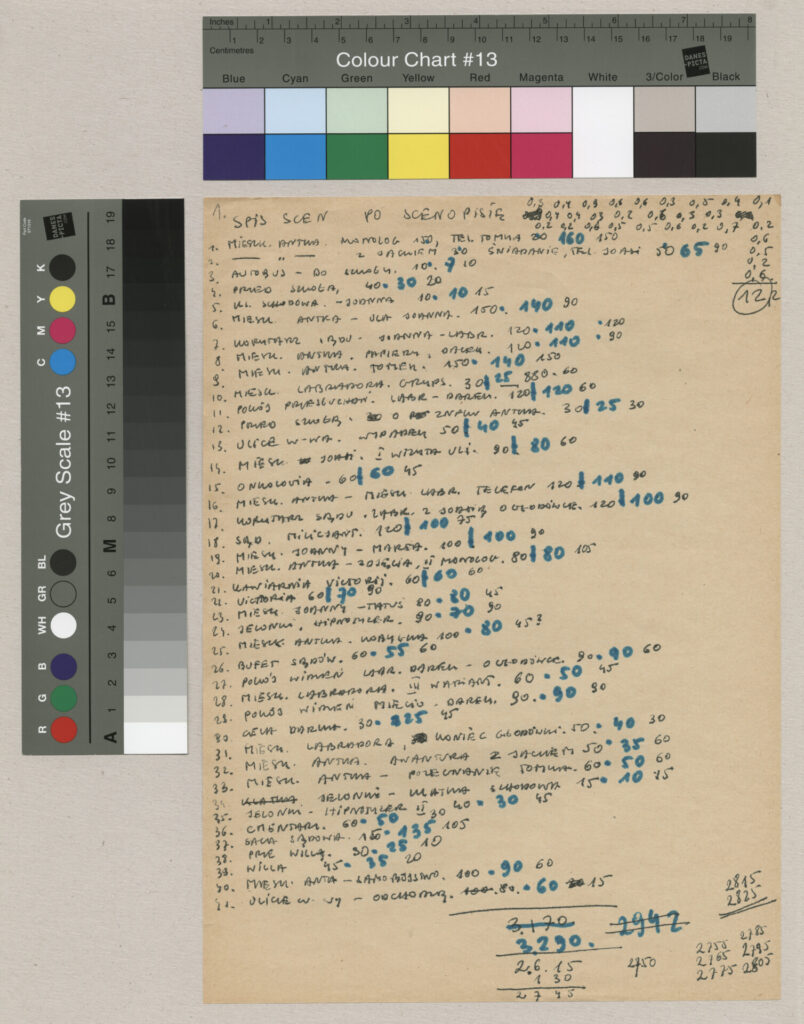 Inches 1 2 3 4 5 6 7 8
Centimetres 1 2 3 4 5 6 7 8 9 10 11 12 13 14 15 16 17 18 19
Colour Chart #13
DANES-PICTA.COM
Blue Cyan Green Yellow Red Magenta White 3/Color Black
Grey Scale #13
DANES-PICTA.COM
R G B WH GR BL C M Y K
A 1 2 3 4 5 6 M 8 9 10 11 12 13 14 15 B 17 18 19
1. SPIS SCEN PO SCENOPISIE
0,5 0,4 0,3 0,6 0,3 0,5 0,4 0,1
0,4 0,4 0,3 0,2 0,6 0,3 0,3
0,2 0,2 0,6 0,5 0,5 0,6 0,2 0,7 0,2
0,6
0,5
0,2
0,6
12,2
1. MIESZK. ANTKA. MONOLOG 150, TEL. TOMKA 160 150
2. — " — Z JACKIEM 30 ŚNIADANIE, TEL. JOASI 50 65 90
3. AUTOBUS - DO SZKOŁY. 10. 7 10
4. PRZED SZKOŁĄ, 40. 30 20
5. KL. SCHODOWA. - JOANNA 10. 10 15
6. MIESZK. ANTKA - ULA JOANNA. 150. 140 90
7. KORYTARZ SĄDU. JOANNA - LABR. 120. 110 120
8. MIESZK. ANTKA. PAPIERY, DAREK. 120. 110 90
9. MIESZK. ANTKA. TOMEK. 150. 140 150
10. MIESZK. LABRADORA. GRYPS. 30 25 60
11. POKÓJ PRZESŁUCHAŃ. LABR - DAREK. 120 120 60
12. PRZED SZKOŁĄ. ANTKA. 30 25 30
13. ULICE W-WA. WYPADEK 50 40 45
14. MIESZK. JOASI. I WIZYTA ULI. 90 80 60
15. ONKOLOGIA - 60 60 45
16. MIESZK. ANTKA - MIESZK. LABR. TELEFON 120 110 90
17. KORYTARZ SĄDU. LABR. Z JOASIĄ O GŁODÓWCE. 120 100 90
18. SĄD. MILICJANT. 120 100 75
19. MIESZK. JOANNY - MARTA. 100 100 90
20. MIESZK. ANTKA - ZDJĘCIA, II MONOLOG. 80 80 105
21. KAWIARNIA VICTORII. 60 60 60
22. VICTORIA 60 70 90
23. MIESZK. JOANNY - TATUŚ 80. 80 45
24. JELONKI, HIPNOTYZER. 90. 70 90
25. MIESZK. ANTKA. 100. 80 45?
26. BUFET SĄDÓW. 60. 55 60
27. POKÓJ WIDZEŃ LABR. DAREK - O GŁODÓWCE. 90. 90 60
28. MIESZK. LABRADORA. III WARIANT. 60. 50 45
29. POKÓJ WIDZEŃ MIECIO - DAREK. 90. 90 90
30. CELA DARKA. 30. 25 45
31. MIESZK. LABRADORA, KONIEC GŁODÓWKI. 50. 40 30
32. MIESZK. ANTKA. AWANTURA Z JACKIEM 50. 35 60
33. MIESZK. ANTKA - POŻEGNANIE TOMKA. 60. 50 60
34. KLATKA JELONKI - KLATKA SCHODOWA 15. 10 15
35. JELONKI - HIPNOTYZER II 40. 30 45
36. CMENTARZ. 60. 50 30
37. SALA SĄDOWA. 150. 135 105
38. PRZED WILLĄ. 30. 25 10
39. WILLA 45. 35 20
40. MIESZK. ANTKA - SAMOBÓJSTWO. 100. 90 60
41. ULICE W-WY - ODCHODZĄ. 100. 80. 60 15
3.170 2942
3.290.
2.6.15
1 30
2 7 4 5
2750
2815
2825
2755 2785
2765 2795
2775 2805